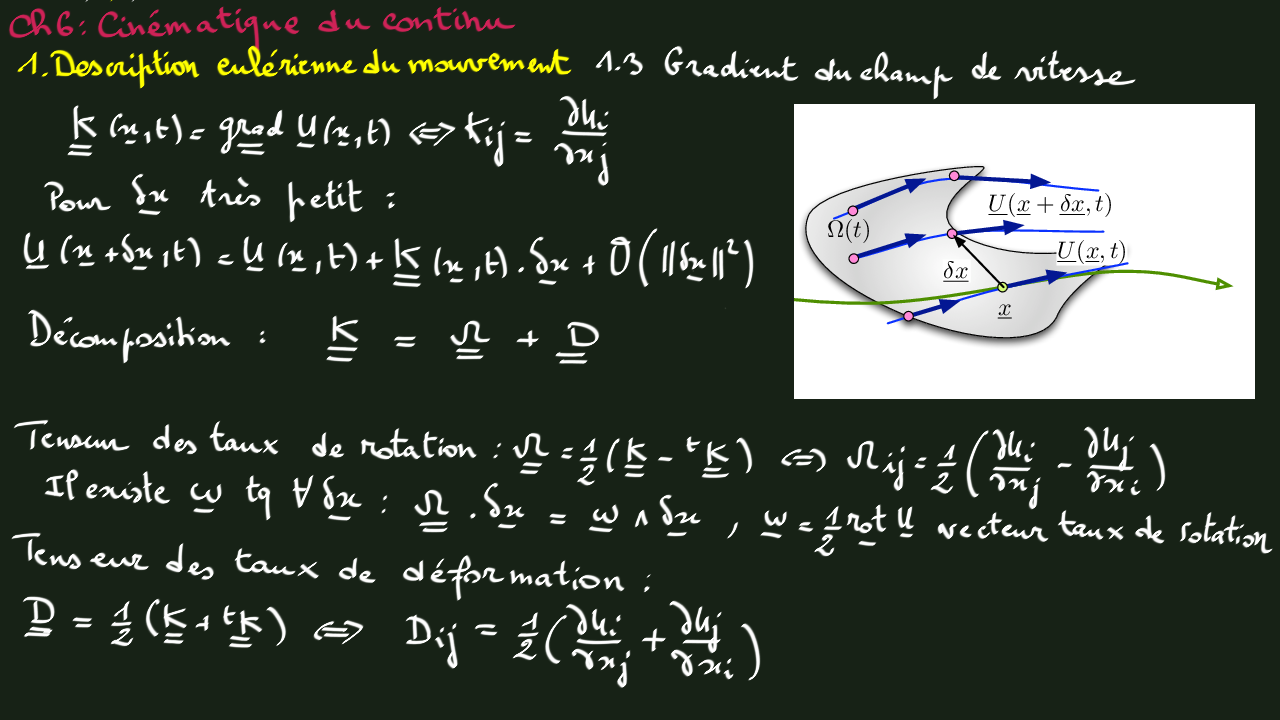 Ch6: Cinématique du continu
1. Description eulérienne du mouvement 1.3 Gradient du champ de vitesse
K̲̲ (x̲,t) = g̲r̲a̲d̲ U̲(x̲,t) ⇔ Kij = ∂Ui/∂xj
Pour δx̲ très petit :
U̲(x̲+δx̲,t) = U̲(x̲,t) + K̲̲(x̲,t) . δx̲ + O(‖δx̲‖²)
Décomposition : K̲̲ = Ω̲̲ + D̲̲
Ω(t)
U̲(x̲ + δx̲, t)
U̲(x̲, t)
δx̲
x̲
Tenseur des taux de rotation : Ω̲̲ = 1/2 (K̲̲ - ᵗK̲̲) ⇔ Ωij = 1/2 (∂Ui/∂xj - ∂Uj/∂xi)
Il existe ω̲ tq ∀ δx̲ : Ω̲̲ . δx̲ = ω̲ ∧ δx̲ , ω̲ = 1/2 rot U̲ vecteur taux de rotation
Tenseur des taux de déformation :
D̲̲ = 1/2 (K̲̲ + ᵗK̲̲) ⇔ Dij = 1/2 (∂Ui/∂xj + ∂Uj/∂xi)